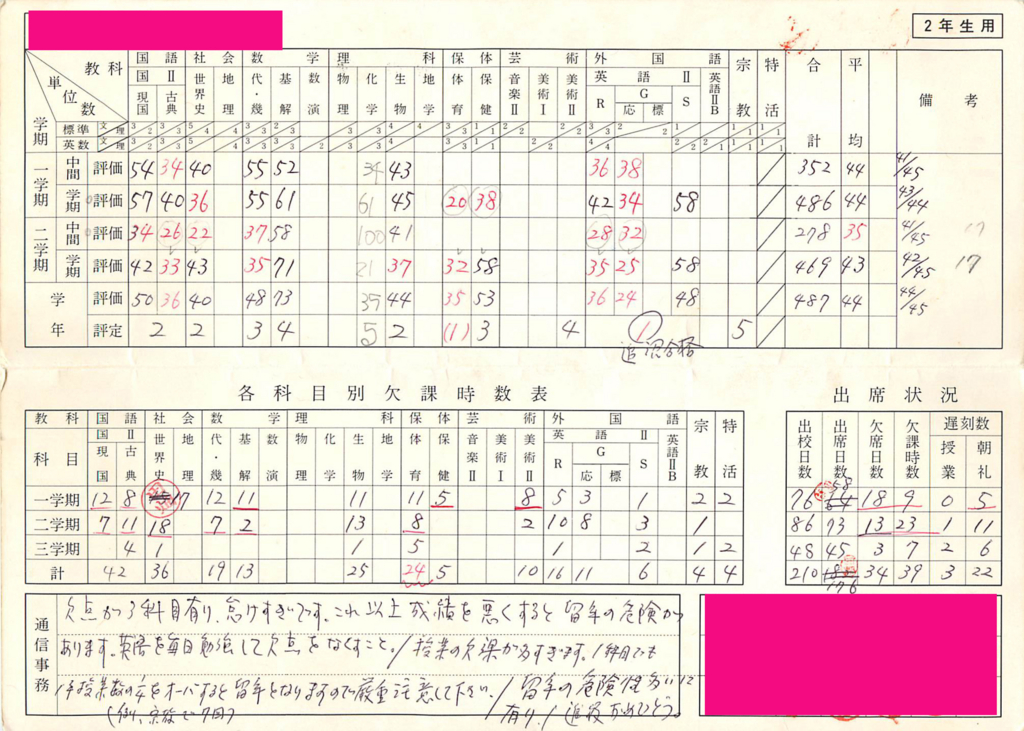 2年生用
教科 国語 社会 数学 理科 保体 芸術 外国語 宗教 特活 合計 平均 備考
単位数 国II 世界史 地理 代・幾 基解 数演 物理 化学 生物 地学 体育 保健 音楽II 美術I 美術II 英語II 英語IIB
学期 現国 古典 R G S
応 標
標準 文理
英数 文理
一学期 中間 評価 54 34 40 55 52 34 43 36 38 352 44 41/45
学期 評価 57 40 36 55 61 61 45 20 38 42 34 58 486 44 43/44
二学期 中間 評価 34 26 22 37 58 100 41 28 32 278 35 41/45 17
学期 評価 42 33 43 35 71 21 37 32 58 35 25 58 469 43 42/45 17
学年 評価 50 36 40 48 73 39 44 35 53 36 24 48 487 44 44/45
評定 2 2 3 4 5 2 (1) 3 4 1 5
追認合格
各科目別欠課時数表
教科 国語 社会 数学 理科 保体 芸術 外国語 宗教 特活
科目 国II 現国 古典 世界史 地理 代・幾 基解 数演 物理 化学 生物 地学 体育 保健 音楽II 美術I 美術II 英語II R G 応 標 S 英語IIB
一学期 12 8 17 12 11 11 11 5 8 5 3 1 2 2
二学期 7 11 18 7 2 13 8 2 10 8 3 1
三学期 4 1 1 5 1 2 1 2
計 42 36 19 13 25 24 5 10 16 11 6 4 4
出席状況
出校日数 出席日数 欠席日数 欠課時数 遅刻数
授業 朝礼
76 58 18 9 0 5
86 73 13 23 1 11
48 45 3 7 2 6
210 176 34 39 3 22
通信事務
欠点が7科目有り、怠けすぎです。これ以上成績を悪くすると留年の危険が
あります。英語を毎日勉強して欠点をなくすこと。/授業の欠課が多すぎます。1科目でも
授業数の1/4をオーバーすると留年となりますので厳重注意して下さい。/留年の危険性多いに
(例、宗教で7回) 有り。/進級おめでとう。